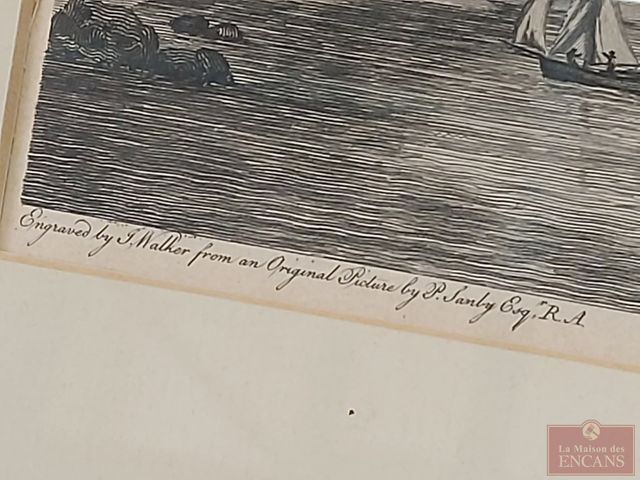 Engraved by J. Walker from an Original Picture by P. Sanby Esq.r R A
La Maison des
ENCANS